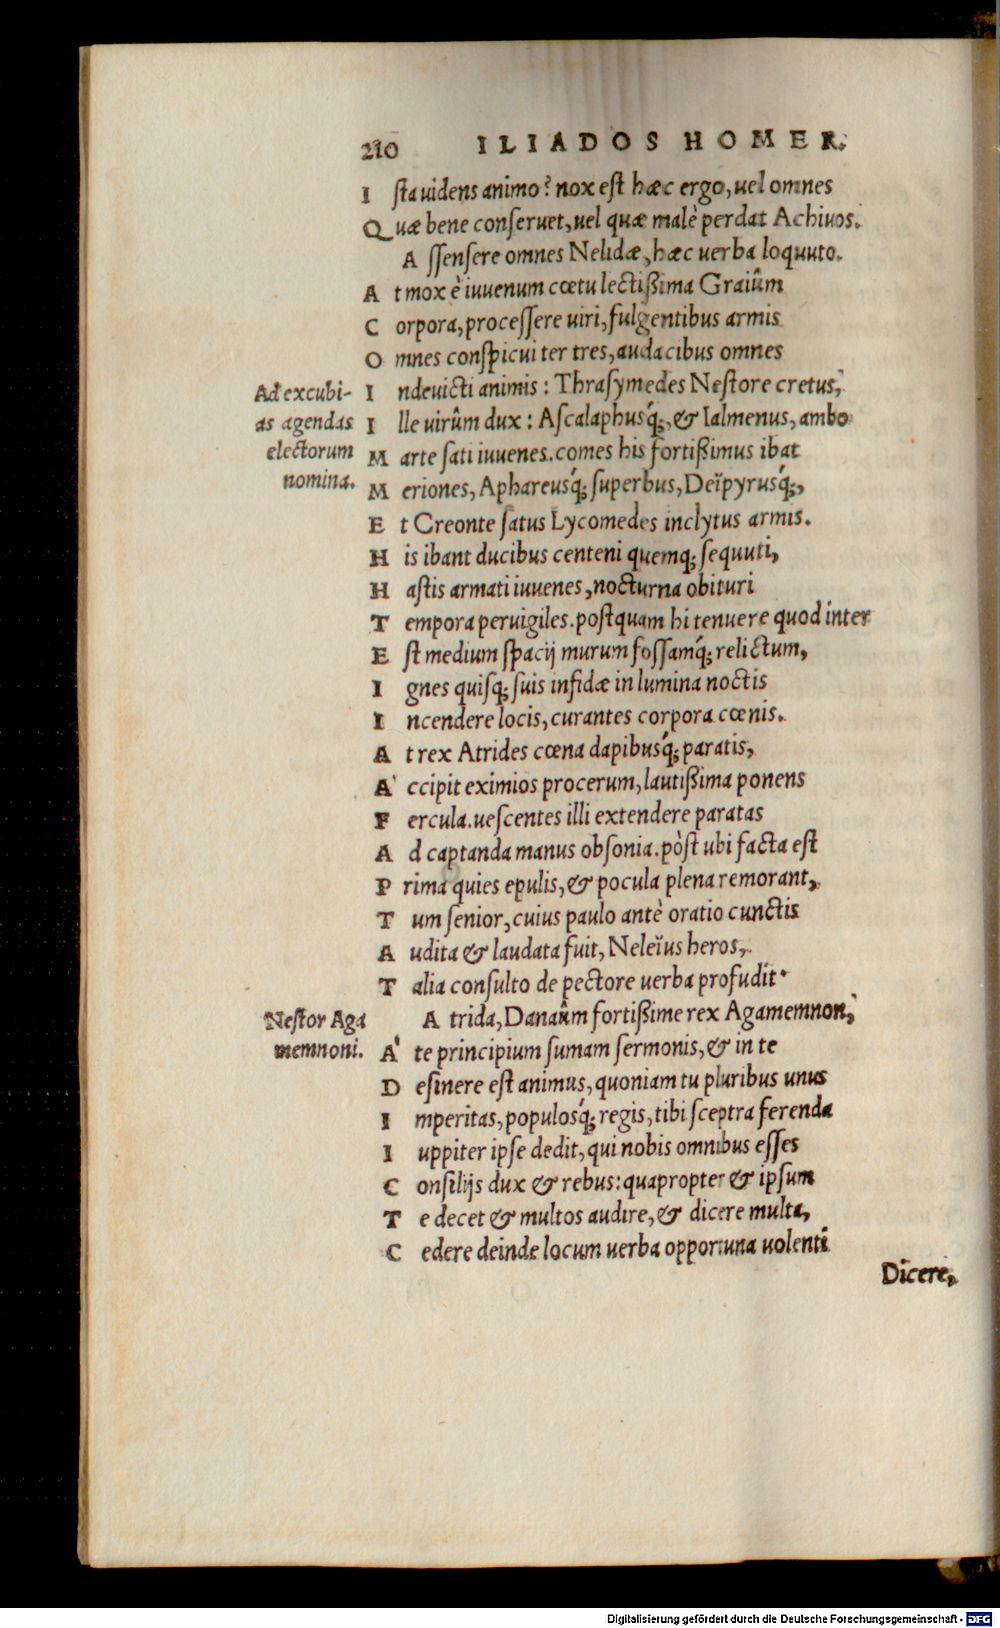 210 ILIADOS HOMER.
I sta uidens animo? nox est hæc ergo, uel omnes
Q uæ bene conseruet, uel quæ malè perdat Achiuos.
A ssensere omnes Nelidæ, hæc uerba loquuto.
A t mox è iuuenum cœtu lectißima Graiûm
C orpora, processere uiri, fulgentibus armis
O mnes conspicui ter tres, audacibus omnes
Ad excubi- I ndeuicti animis: Thrasymedes Nestore cretus,
as agendas I lle uirûm dux: Ascalaphusq́;, & Ialmenus, ambo
electorum M arte sati iuuenes. comes his fortißimus ibat
nomina. M eriones, Aphareusq́; superbus, Deïpyrusq́;,
E t Creonte satus Lycomedes inclytus armis.
H is ibant ducibus centeni quemq; sequuti,
H astis armati iuuenes, nocturna obituri
T empora peruigiles. postquam hi tenuere quod inter
E st medium spacij murum fossamq́; relictum,
I gnes quisq; suis infidæ in lumina noctis
I ncendere locis, curantes corpora cœnis.
A t rex Atrides cœna dapibusq́; paratis,
A ccipit eximios procerum, lautißima ponens
F ercula. uescentes illi extendere paratas
A d captanda manus obsonia. pòst ubi facta est
P rima quies epulis, & pocula plena remorant,
T um senior, cuius paulo antè oratio cunctis
A udita & laudata fuit, Neleïus heros,
T alia consulto de pectore uerba profudit.
Nestor Aga A trida, Danaûm fortißime rex Agamemnon,
memnoni. A te principium sumam sermonis, & in te
D esinere est animus, quoniam tu pluribus unus
I mperitas, populosq́; regis, tibi sceptra ferenda
I uppiter ipse dedit, qui nobis omnibus esses
C onsilijs dux & rebus: quapropter & ipsum
T e decet & multos audire, & dicere multa,
C edere deinde locum uerba opportuna uolenti
Dicere,
Digitalisierung gefördert durch die Deutsche Forschungsgemeinschaft - DFG